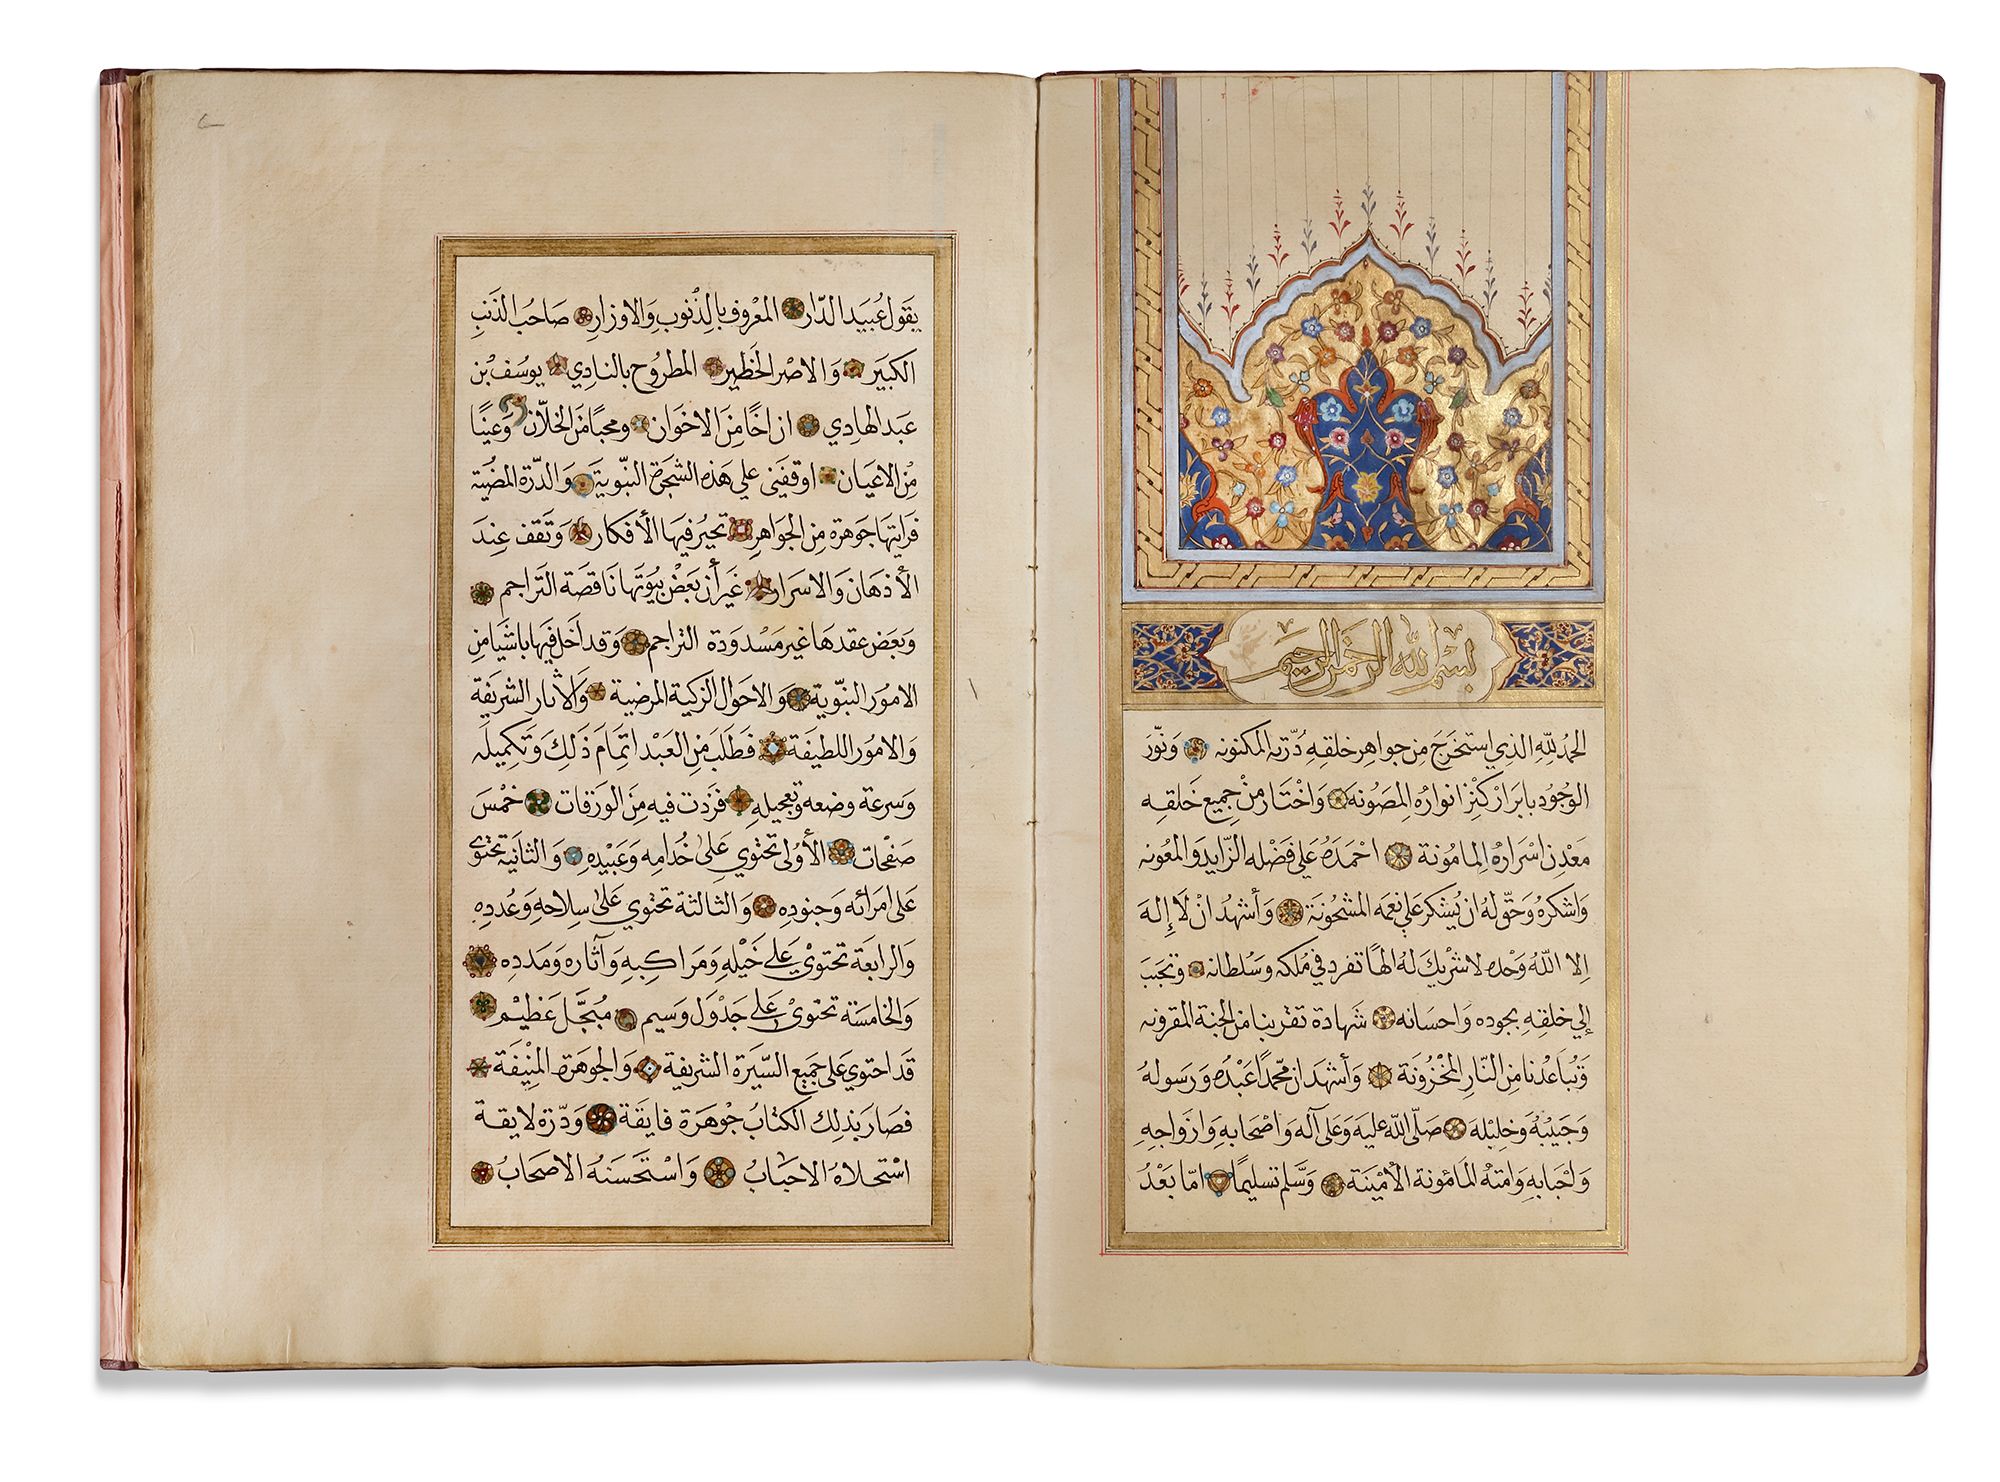 بسم الله الرحمن الرحيم
الحمد لله الذي استخرج من جواهر خلقه دُرّته المكنونه ونوّر
الوجود بابراز كنز انواره المصونه واختار من جميع خلقه
معدن اسراره المامونة احمده علي فضله الزايد والمعونه
واشكره وحقّ له ان يُشكر علي نعمه المشحونة وأشهد ان لا إله
إلا الله وحده لا شريك له الهًا تفرد في ملكه وسلطانه وتحبب
إلي خلقه بجوده واحسانه شهادة تقربنا من الجنة المقرونه
وتباعدنا من النار المخزونة وأشهد ان محمدًا عبده ورسوله
وحبيبه وخليله صلّى الله عليه وعلى آله واصحابه وازواجه
واحبابه وامته المامونة الأمينة وسلّم تسليمًا امّا بَعْدُ
يقول عُبيد الدّار المعروف بالذنوب والاوزار صاحب الذنب
الكبير والاصر الخطير المطروح بالنادي يوسف بن
عبد الهادي ان اخًا من الاخوان ومحبًا من الخلّان وعينًا
من الاعيان اوقفني علي هذه الشجرة النبّوية والدّرة المضية
فرايتها جوهرة من الجواهر تحير فيها الأفكار وتقف عند
الأذهان والاسرار غير أن بعض بيوتها ناقصة التراجم
وبعض عقدها غير مسدودة التراجم وقد أخل فيها باشيا من
الامور النبّوية والاحوال الزكية المرضية والأثار الشريفة
والامور اللطيفة فطلب من العبد اتمام ذلك وتكميله
وسرعة وضعه وتعجيله فزدت فيه من الورقات خمس
صفحات الأولى تحتوي على خدامه وعبيده والثانية تحتوي
على امرائه وجنوده والثالثة تحتوي على سلاحه وعُدده
والرابعة تحتوي على خيله ومراكبه وآثاره ومدده
والخامسة تحتوي على جدول وسيم مُبجّل عظيم
قد احتوي على جميع السّيرة الشريفة والجوهرة المنيفة
فصار بذلك الكتاب جوهرة فايقة ودّرة لايقة
استحلاه الاحباب واستحسنه الاصحاب